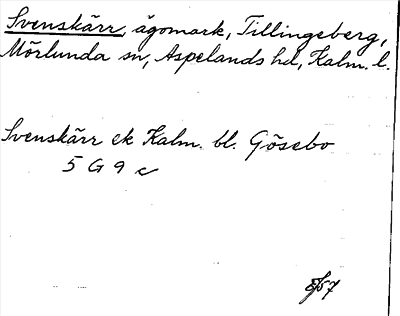 Svenskärr, ägomark, Tillingeberg,
Mörlunda sn, Aspelands hd, Kalm. l.
Svenskärr ek Kalm. bl. Gösebo
5 G 9 c